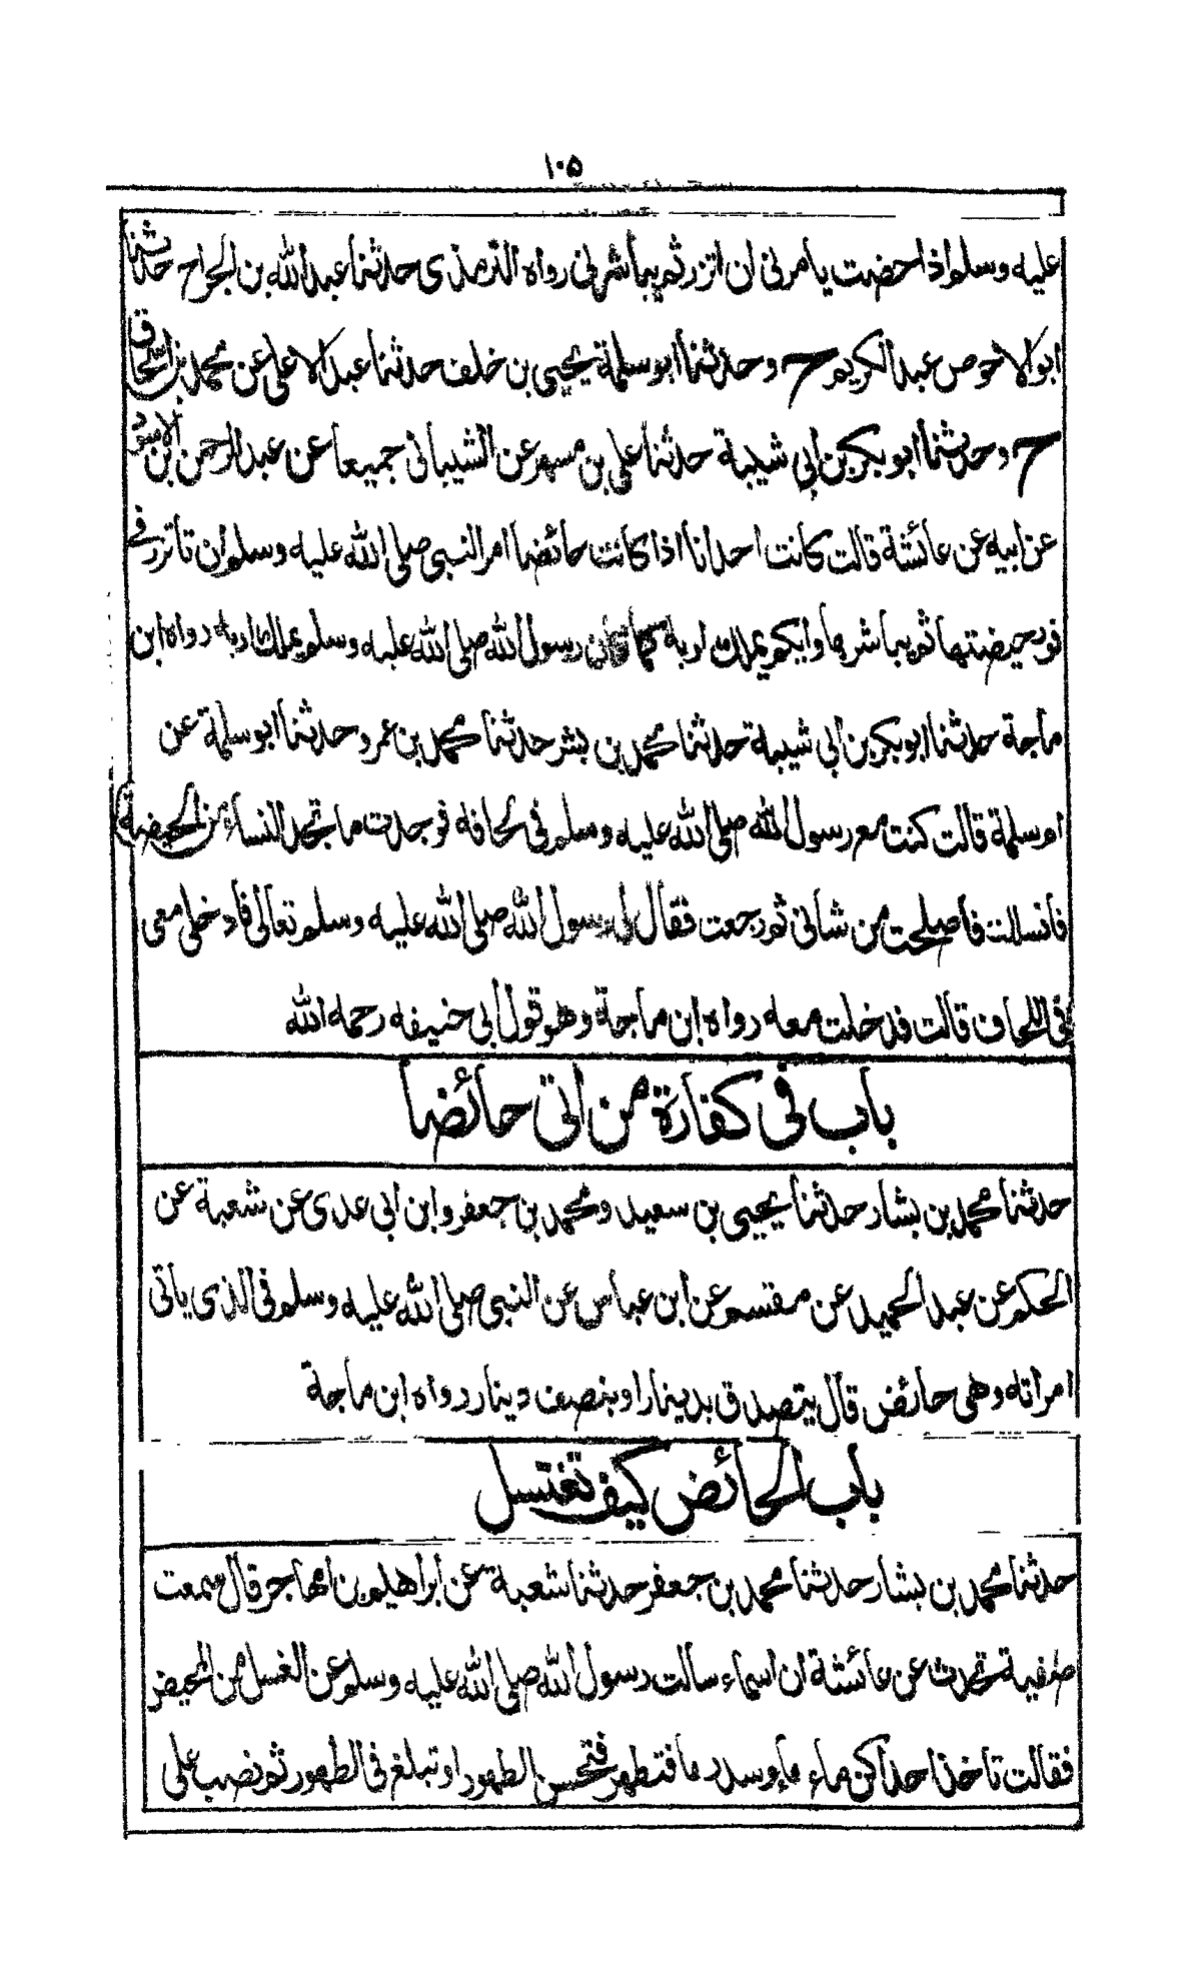 ١٠٥
عليه وسلم اذا حضت يامرنى ان اتزر ثم يباشرنى رواه الترمذى حدثنا عبد الله بن الجراح حدثنا
ابو الاحوص عبد الكريم ح وحدثنا ابو سلمة يحيى بن خلف حدثنا عبد الاعلى عن محمد بن اسحاق
ح وحدثنا ابو بكر بن ابى شيبة حدثنا على بن مسهر عن الشيبانى جميعا عن عبد الرحمن بن الاسود
عن ابيه عن عائشة قالت كانت احدانا اذا كانت حائضا امر النبى صلى الله عليه وسلم ان تاتزر فى
فور حيضتها ثم يباشرها وايكم يملك اربه كما كان رسول الله صلى الله عليه وسلم يملك اربه رواه ابن
ماجة حدثنا ابو بكر بن ابى شيبة حدثنا محمد بن بشر حدثنا محمد بن عمرو حدثنا ابو سلمة عن
ام سلمة قالت كنت مع رسول الله صلى الله عليه وسلم فى لحافه فوجدت ما تجد النساء من الحيضة
فانسللت فاصلحت من شانى ثم رجعت فقال لى رسول الله صلى الله عليه وسلم تعالى فادخلى معى
فى اللحاف قالت فدخلت معه رواه ابن ماجة وهو قول ابى حنيفه رحمه الله
باب فى كفارة من اتى حائضا
حدثنا محمد بن بشار حدثنا يحيى بن سعيد ومحمد بن جعفر وابن ابى عدى عن شعبة عن
الحكم عن عبد الحميد عن مقسم عن ابن عباس عن النبى صلى الله عليه وسلم فى الذى ياتى
امراته وهى حائض قال يتصدق بدينار او بنصف دينار رواه ابن ماجة
باب الحائض كيف تغتسل
حدثنا محمد بن بشار حدثنا محمد بن جعفر حدثنا شعبة عن ابراهيم بن المهاجر قال سمعت
صفية تحدث عن عائشة ان اسماء سالت رسول الله صلى الله عليه وسلم عن الغسل من المحيض
فقالت تاخذ احداكن ماء ماء وسدر ما فتطهر فتحسن الطهور او تبلغ فى الطهور ثم نصب على